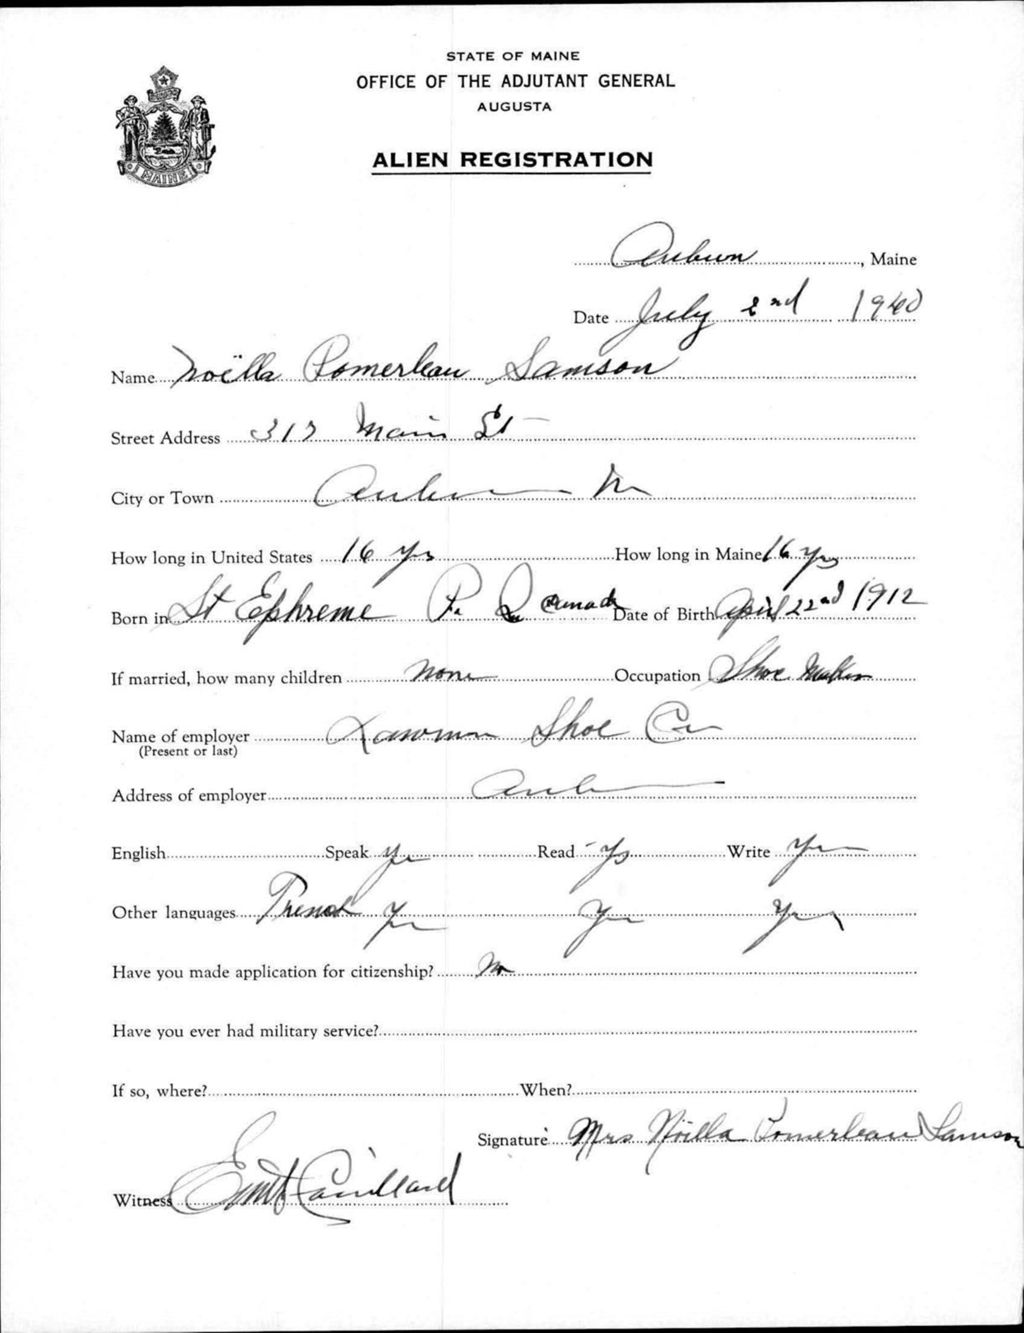 STATE OF MAINE
OFFICE OF THE ADJUTANT GENERAL
AUGUSTA
MAINE
ALIEN REGISTRATION
Auburn, Maine
Date July 2nd 1940
Name Noëlla Pomerleau Samson
Street Address 317 Main St
City or Town Auburn Me
How long in United States 16 yrs How long in Maine 16 yrs
Born in St Ephreme P. Q Canada Date of Birth April 22nd 1912
If married, how many children None Occupation Shoe Maker
Name of employer Shoe Co
(Present or last)
Address of employer Auburn
English Speak Yes Read Yes Write Yes
Other languages French Yes Yes Yes
Have you made application for citizenship? No
Have you ever had military service?
If so, where? When?
Signature Mrs Noëlla Pomerleau Samson
Witness